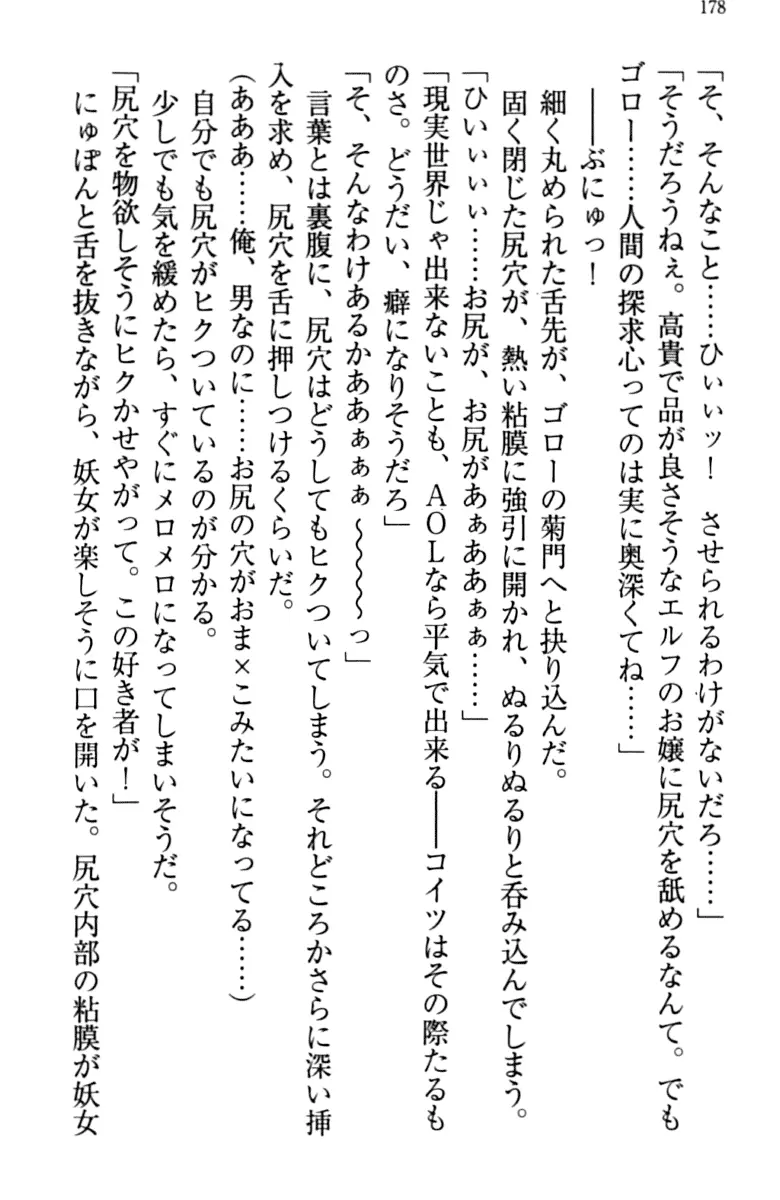 178
「そ、そんなこと……ひぃぃッ！　させられるわけがないだろ……」
「そうだろうねぇ。高貴で品が良さそうなエルフのお嬢に尻穴を舐めるなんて。でも
ゴロー……人間の探求心ってのは実に奥深くてね……」
――ぶにゅっ！
細く丸められた舌先が、ゴローの菊門へと抉り込んだ。
固く閉じた尻穴が、熱い粘膜に強引に開かれ、ぬるりぬるりと呑み込んでしまう。
「ひいぃぃぃ……お尻が、お尻があぁああぁぁ……」
「現実世界じゃ出来ないことも、ＡＯＬなら平気で出来る――コイツはその際たるも
のさ。どうだい、癖になりそうだろ」
「そ、そんなわけあるかああぁぁぁ～～～～っ」
言葉とは裏腹に、尻穴はどうしてもヒクついてしまう。それどころかさらに深い挿
入を求め、尻穴を舌に押しつけるくらいだ。
（あああ……俺、男なのに……お尻の穴がおま×こみたいになってる……）
自分でも尻穴がヒクついているのが分かる。
少しでも気を緩めたら、すぐにメロメロになってしまいそうだ。
「尻穴を物欲しそうにヒクかせやがって。この好き者が！」
にゅぽんと舌を抜きながら、妖女が楽しそうに口を開いた。尻穴内部の粘膜が妖女